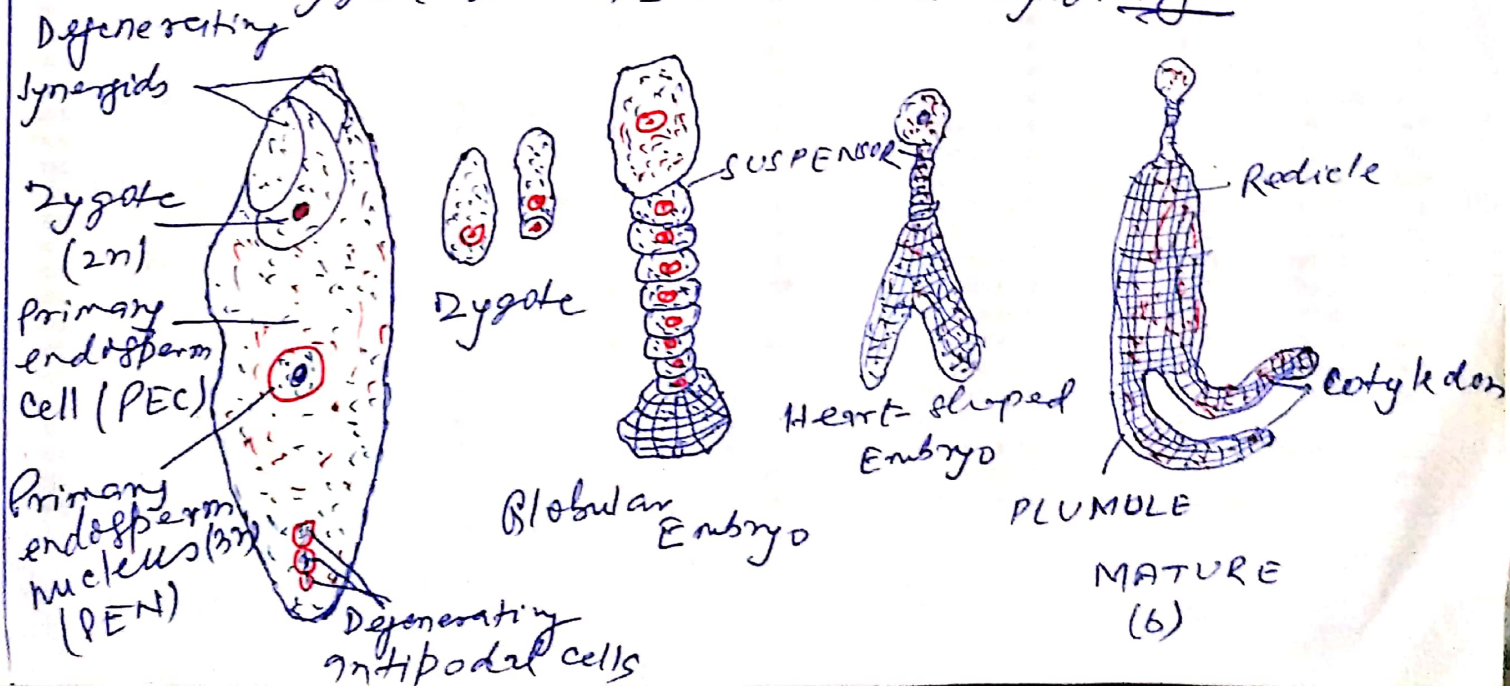 Degenerating
Synergids
Zygote
(2n)
Primary
endosperm
cell (PEC)
Primary
endosperm
nucleus (3n)
(PEN)
Degenerating
antipodal cells
Zygote
SUSPENSOR
Globular
Embryo
Heart-shaped
Embryo
Redicle
Cotyledon
PLUMULE
MATURE
(6)